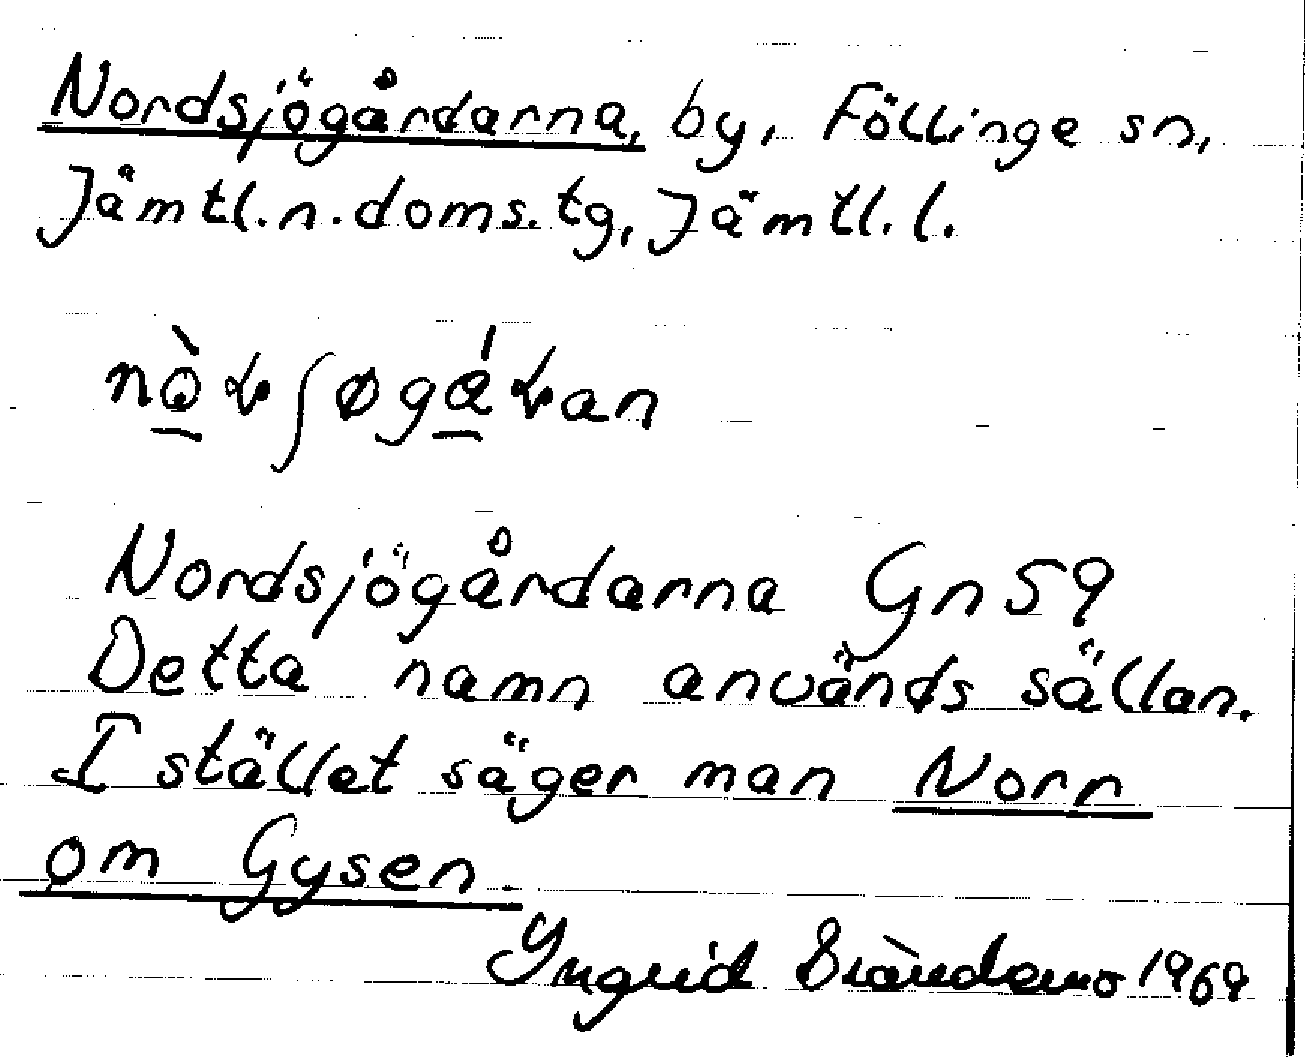 Nordsjögårdarna, by, Föllinge sn,
Jämtl.n.doms.tg, Jämtl.l.
Nordsjögårdarna Gn 59
Detta namn används sällan.
I stället säger man Norr
om Gysen
Ingrid Brändemo 1969